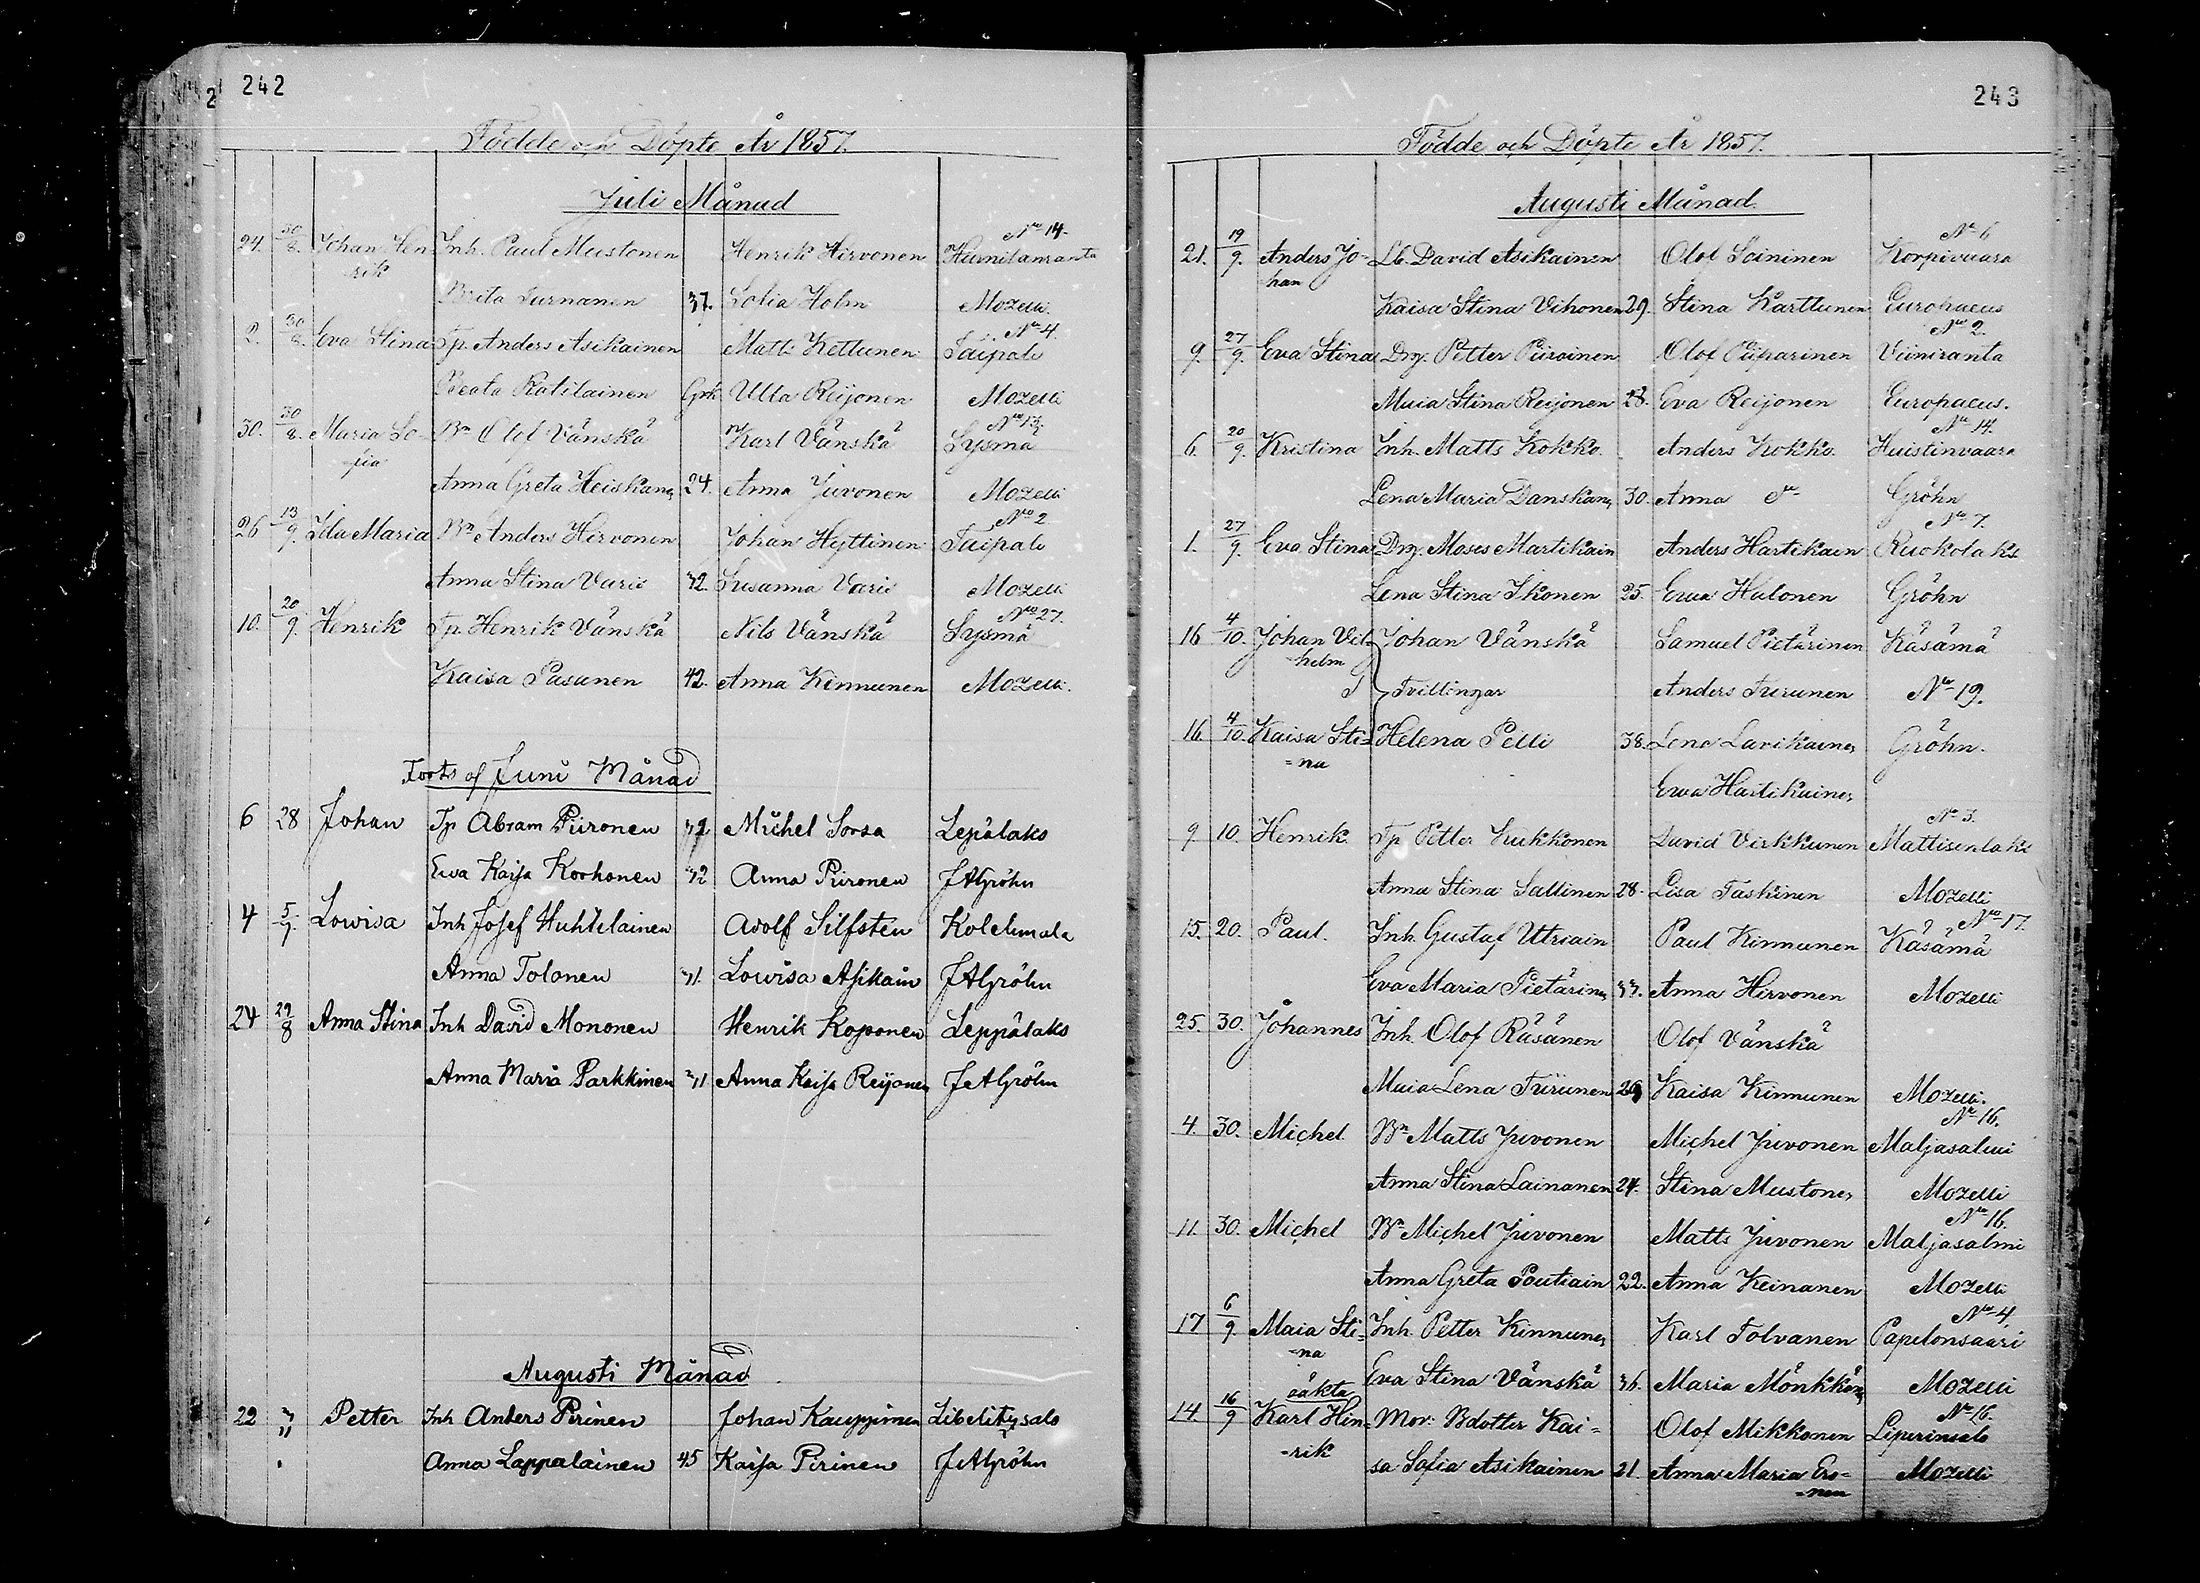 242
Födde och Döpte År 1857.
Juli Månad
24. 30/8. Johan Hen Inh. Paul Mustonen Henrik Hirvonen No 14.
rik
Brita Turnanen 37. Sofia Holm Mozelli.
2. 30/8. Eva Stina Tp. Anders Asikainen Matti Kettunen Taipale No 4.
Beata Ratilainen Ulla Reijonen Mozelli
30. 30/8. Maria So- Bn Olof Vänskä Karl Vänskä Sysmä No 13.
fia
Anna Greta Heiskan, 24. Anna Juvonen Mozelli
26 13/9. Ida Maria Bn Anders Hirvonen Johan Hyttinen Taipale No 2
Anna Stina Varis 32. Susanna Varis Mozelli
10. 20/9. Henrik Tp. Henrik Vänskä Nils Vänskä Sysmä No 27.
Kaisa Pasanen 42. Anna Kinnunen Mozelli.
Forts af Juni Månad
6 28 Johan Tp Abram Piironen Michel Sorsa Lepälaks
Ewa Kaisa Korhonen 32 Anna Piironen JAGröhn
4 5/7. Lowisa Inh Josef Huhtelainen Adolf Silfsten
Anna Tolonen 31. Lowisa Asikain JAGröhn
24 29/8 Anna Stina Inh David Mononen Henrik Koponen Leppälaks
Anna Maria Parkkinen 31 Anna Kaisa Reijonen JAGröhn
Augusti Månad
22 Petter Inh Anders Pirinen Johan Kauppinen
Anna Lappalainen 45 Kaisa Pirinen JAGröhn
243
Födde och Döpte År 1857.
Augusti Månad.
21. 19/9. Anders Jo- Lb. David Asikainen Olof Soininen Korpivaara No 6
han
Kaisa Stina Vihonen 29. Stina Karttunen Europaeus
9. 27/9. Eva Stina Drg. Petter Piiroinen Olof Piiparinen Viiniranta No 2.
Maia Stina Reijonen 28. Eva Reijonen Europaeus.
6. 20/9. Kristina Inh. Matts Kokko. Anders Kokko. Huistinvaara No 14.
Lena Maria Danskan, 30. Anna Do Gröhn
1. 27/9. Eva Stina Drg. Moses Martikain Anders Hartikain Ruokolaks No 7.
Lena Stina Ikonen 25. Ewa Halonen Gröhn
16 4/10. Johan Vil- Johan Vänskä Samuel Pietärinen Käsämä
helm
Tvillingar Anders Turunen No 19.
16. 4/10. Kaisa Sti- Helena Pelli 38. Lena Lavikainen Gröhn.
=na
Ewa Hartikainen
9. 10. Henrik. Tp Petter Kukkonen David Virkkunen Mattisenlaks No 3.
Anna Stina Sallinen 28. Lisa Taskinen Mozelli
15. 20. Paul. Inh Gustaf Utriain Paul Kinnunen Käsämä No 17.
Eva Maria Pietärinen 33. Anna Hirvonen Mozelli
25. 30. Johannes Inh. Olof Räsänen Olof Vänskä
Maia Lena Turunen 29 Kaisa Kinnunen Mozelli.
4. 30. Michel. Bn Matts Juvonen Michel Juvonen Maljasalmi No 16.
Anna Stina Lainanen 24. Stina Mustonen Mozelli
11. 30. Michel Bn Michel Juvonen Matts Juvonen Maljasalmi No 16.
Anna Greta Poutiain 22. Anna Keinanen Mozelli
17 6/9. Maia Sti= Inh. Petter Kinnunen Karl Tolvanen Papelonsaari No 4.
=na
Eva Stina Vänskä 36. Maria Mönkkön, Mozelli
oäkta
14. 16/9 Karl Hin= Mor: Bdotter Kai= Olof Mikkonen Liperinsalo No 16.
=rik sa Sofia Asikainen 21. Anna Maria Ero= Mozelli
=nen